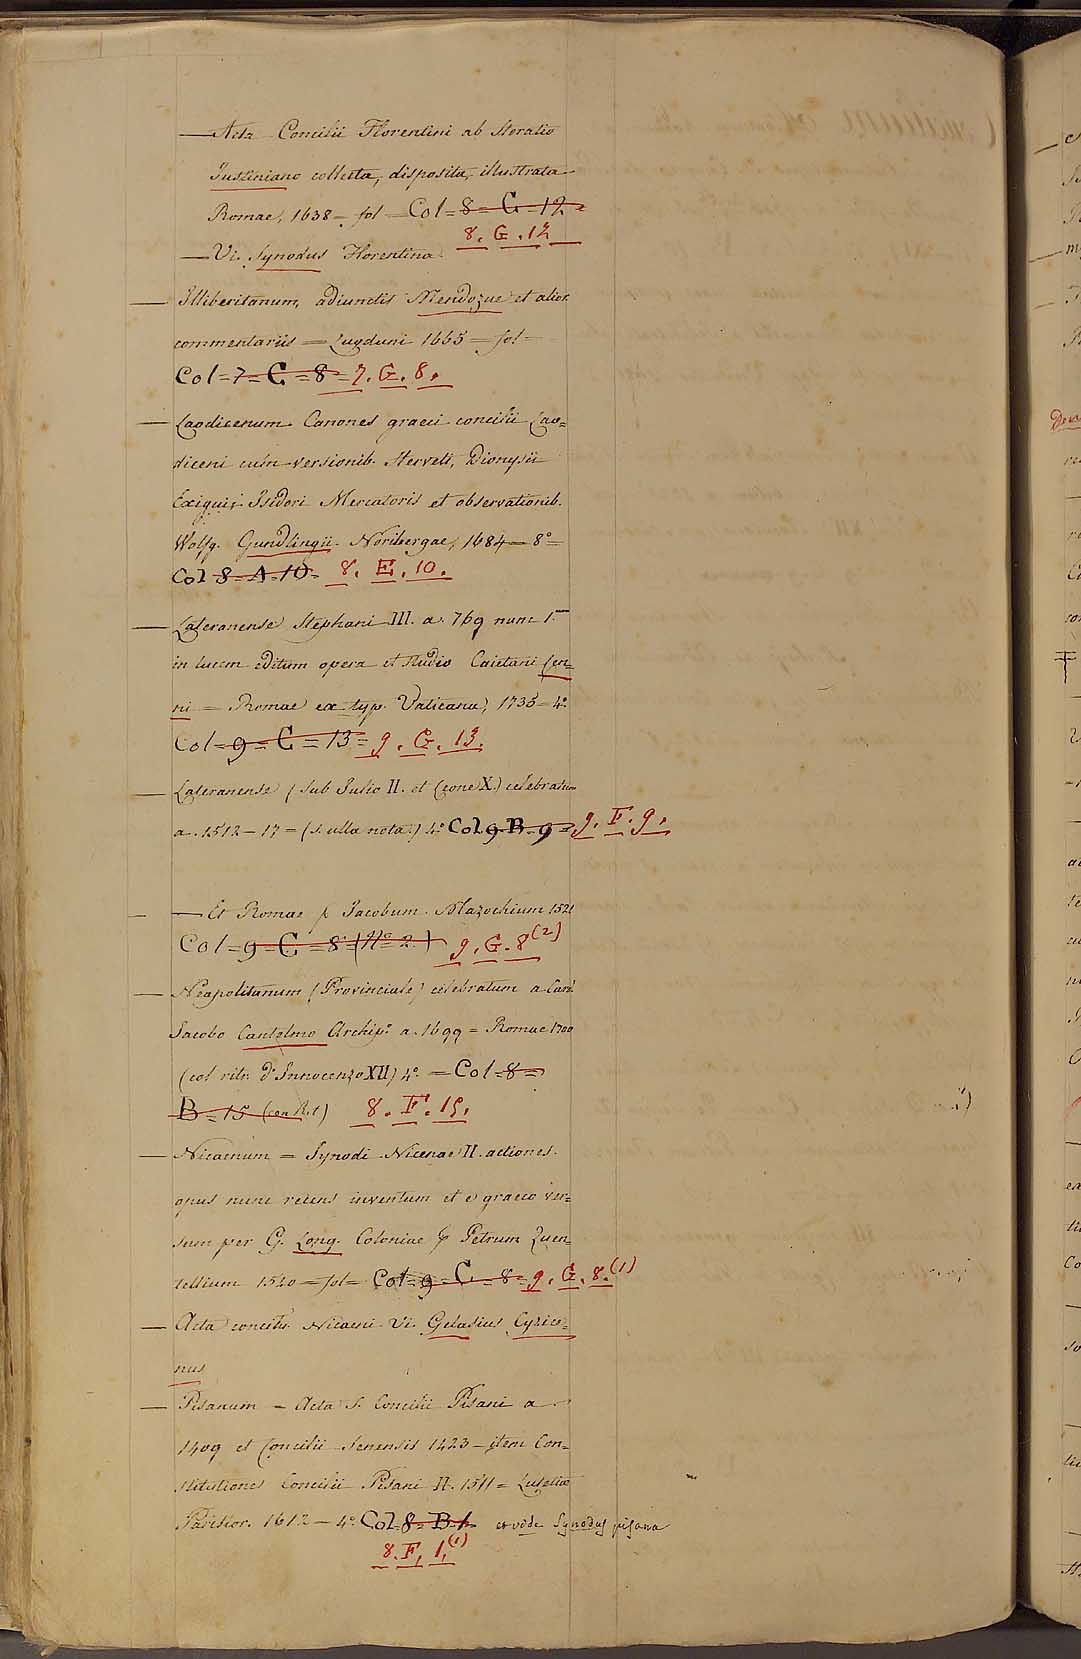 — Acta Concilii Florentini ab Horatio
Justiniano collecta, disposita, illustrata
Romae, 1638 = fol = Col = 8 = G = 12 =
8. G. 12
— Vi. Synodus Florentina.
— Illiberitanum, adiunctis Mendozae et alior.
commentariis = Lugduni 1665 = fol =
Col = 7 = C = 8 = 7. G. 8.
— Laodicenum. Canones graeci concilii Lao=
diceni cum versionib. Herveti, Dionysii
Exigui, Isidori Mercatoris et observationib.
Wolfg. Gundlingii. Noribergae, 1684 = 8° =
Col 8 = A = 10 = 8. E. 10.
— Lateranense Stephani III. a. 769 nunc 1.
in lucem editum opera et studio Caietani Cen=
ni = Romae ex typ. Vaticana, 1735 = 4°.
Col = 9 = C = 13 = 9. G. 13.
— Lateranense (sub Julio II. et Leone X.) celebratum
a. 1512 - 17 = (s. ulla nota.) 4° Col 9. B. 9 = 9. F. 9.
— — Et Romae p Jacobum Mazochium 1521
Col = 9 = C = 8 = (N° 2.) 9. G. 8 (2)
— Neapolitanum (Provinciale) celebratum a Card.
Jacobo Cantelmo Archip. a. 1699 = Romae 1700
(col ritr. d'Innocenzo XII) 4° = Col = 8 =
B = 15 (con Rit) 8. F. 15.
— Nicaenum = Synodi Nicenae II. actiones.
opus nunc recens inventum et e graeco ver=
sum per G. Long. Coloniae p Petrum Quen=
tellium 1540 = fol = Col = 9 = C = 8 = 9. G. 8. (1)
— Acta concilii Nicaeni Vi. Gelasius Cyzice=
nus
— Pisanum = Acta S. Concilii Pisani a.
1409 et Concilii Senensis 1423 = item Con=
stitutiones Concilii Pisani II. 1511 = Lutetiae
Parisior. 1612 = 4° Col 8 = B. 1 et vide Synodus pisana
8. F. 1. (1)